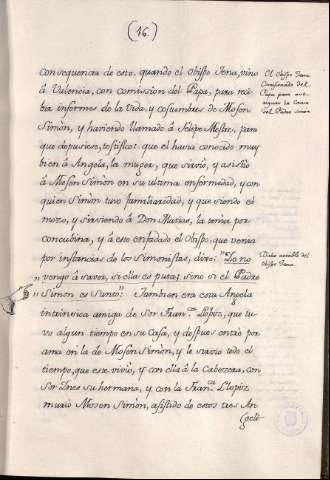 (16.)
consequencia de esto, quando el Obispo Tena, vino
à Valencia, con comission del Papa, para reci-
bir informes de la Vida, y costumbres de Mosen
Simòn, y haviendo llamado à Felipe Mestre, para
que depusiese, testifico: que el havia conocido muy
bien à Angela, la muger, que sirviò, y asistiò
à Mosen Simòn en su ultima enfermedad, y con
quien Simòn tuvo familiaridad, y que siendo el
mozo, y sirviendo à Don Matias, la tenia por
concubina, y à esto enfadado el Obispo, que venia
por instancias de los Simonistas, dixo: "Yo no
"vengo à saver, si ella es puta; sino si el Padre
"Simon es Santo": Tambien era esta Angela
intrinsica amiga de Sor Fran.ca Lopez, que tu-
vo algun tiempo en su Casa, y despues entrò por
ama en la de Mosen Simòn, y le sirviò todo el
tiempo, que este viviò, y con ella à la Cabezera, con
Sor Ines su hermana, y con la Fran.ca Llopiz
muriò Mosen Simòn, asistido de estos tres An-
gele
El Obispo Tena
Comisionado del
Papa para
del Padre Simòn
Dicho notable del
Obispo Tena.